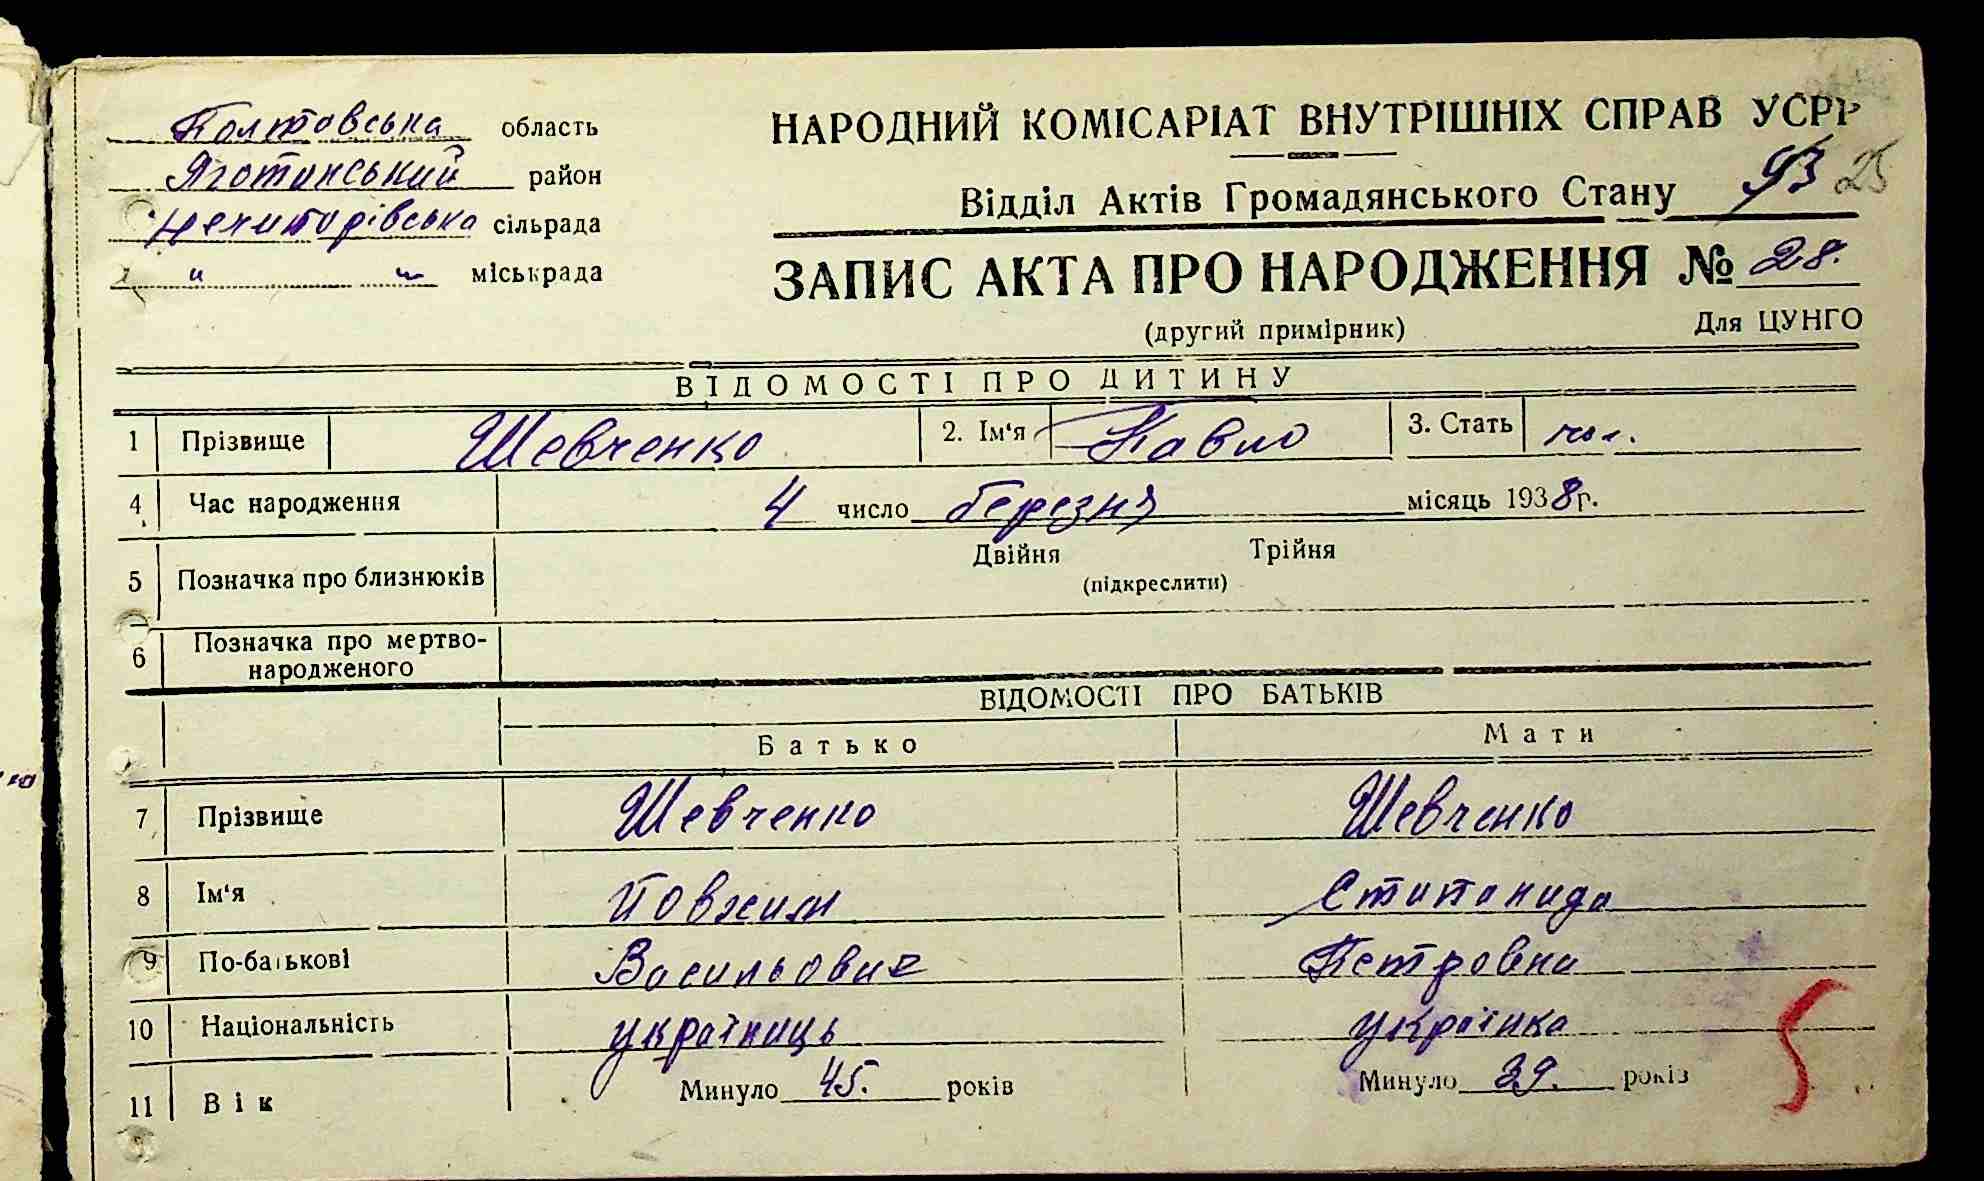 Полтовська область
Яготинський район
Нечипорівська сільрада
" " міськрада
НАРОДНИЙ КОМІСАРІАТ ВНУТРІШНІХ СПРАВ УСРР
Відділ Актів Громадянського Стану 93 25
ЗАПИС АКТА ПРО НАРОДЖЕННЯ № 28.
(другий примірник) Для ЦУНГО
ВІДОМОСТІ ПРО ДИТИНУ
1 Прізвище Шевченко 2. Ім'я Павло 3. Стать чол.
4 Час народження 4 число березня місяць 1938 г.
5 Позначка про близнюків Двійня Трійня
(підкреслити)
6 Позначка про мертво-
народженого
ВІДОМОСТІ ПРО БАТЬКІВ
Батько Мати
7 Прізвище Шевченко Шевченко
8 Ім'я Йовхим Стипонида
9 По-батькові Васильович Петровна
10 Національність україниць українка
11 Вік Минуло 45. років Минуло 39. років